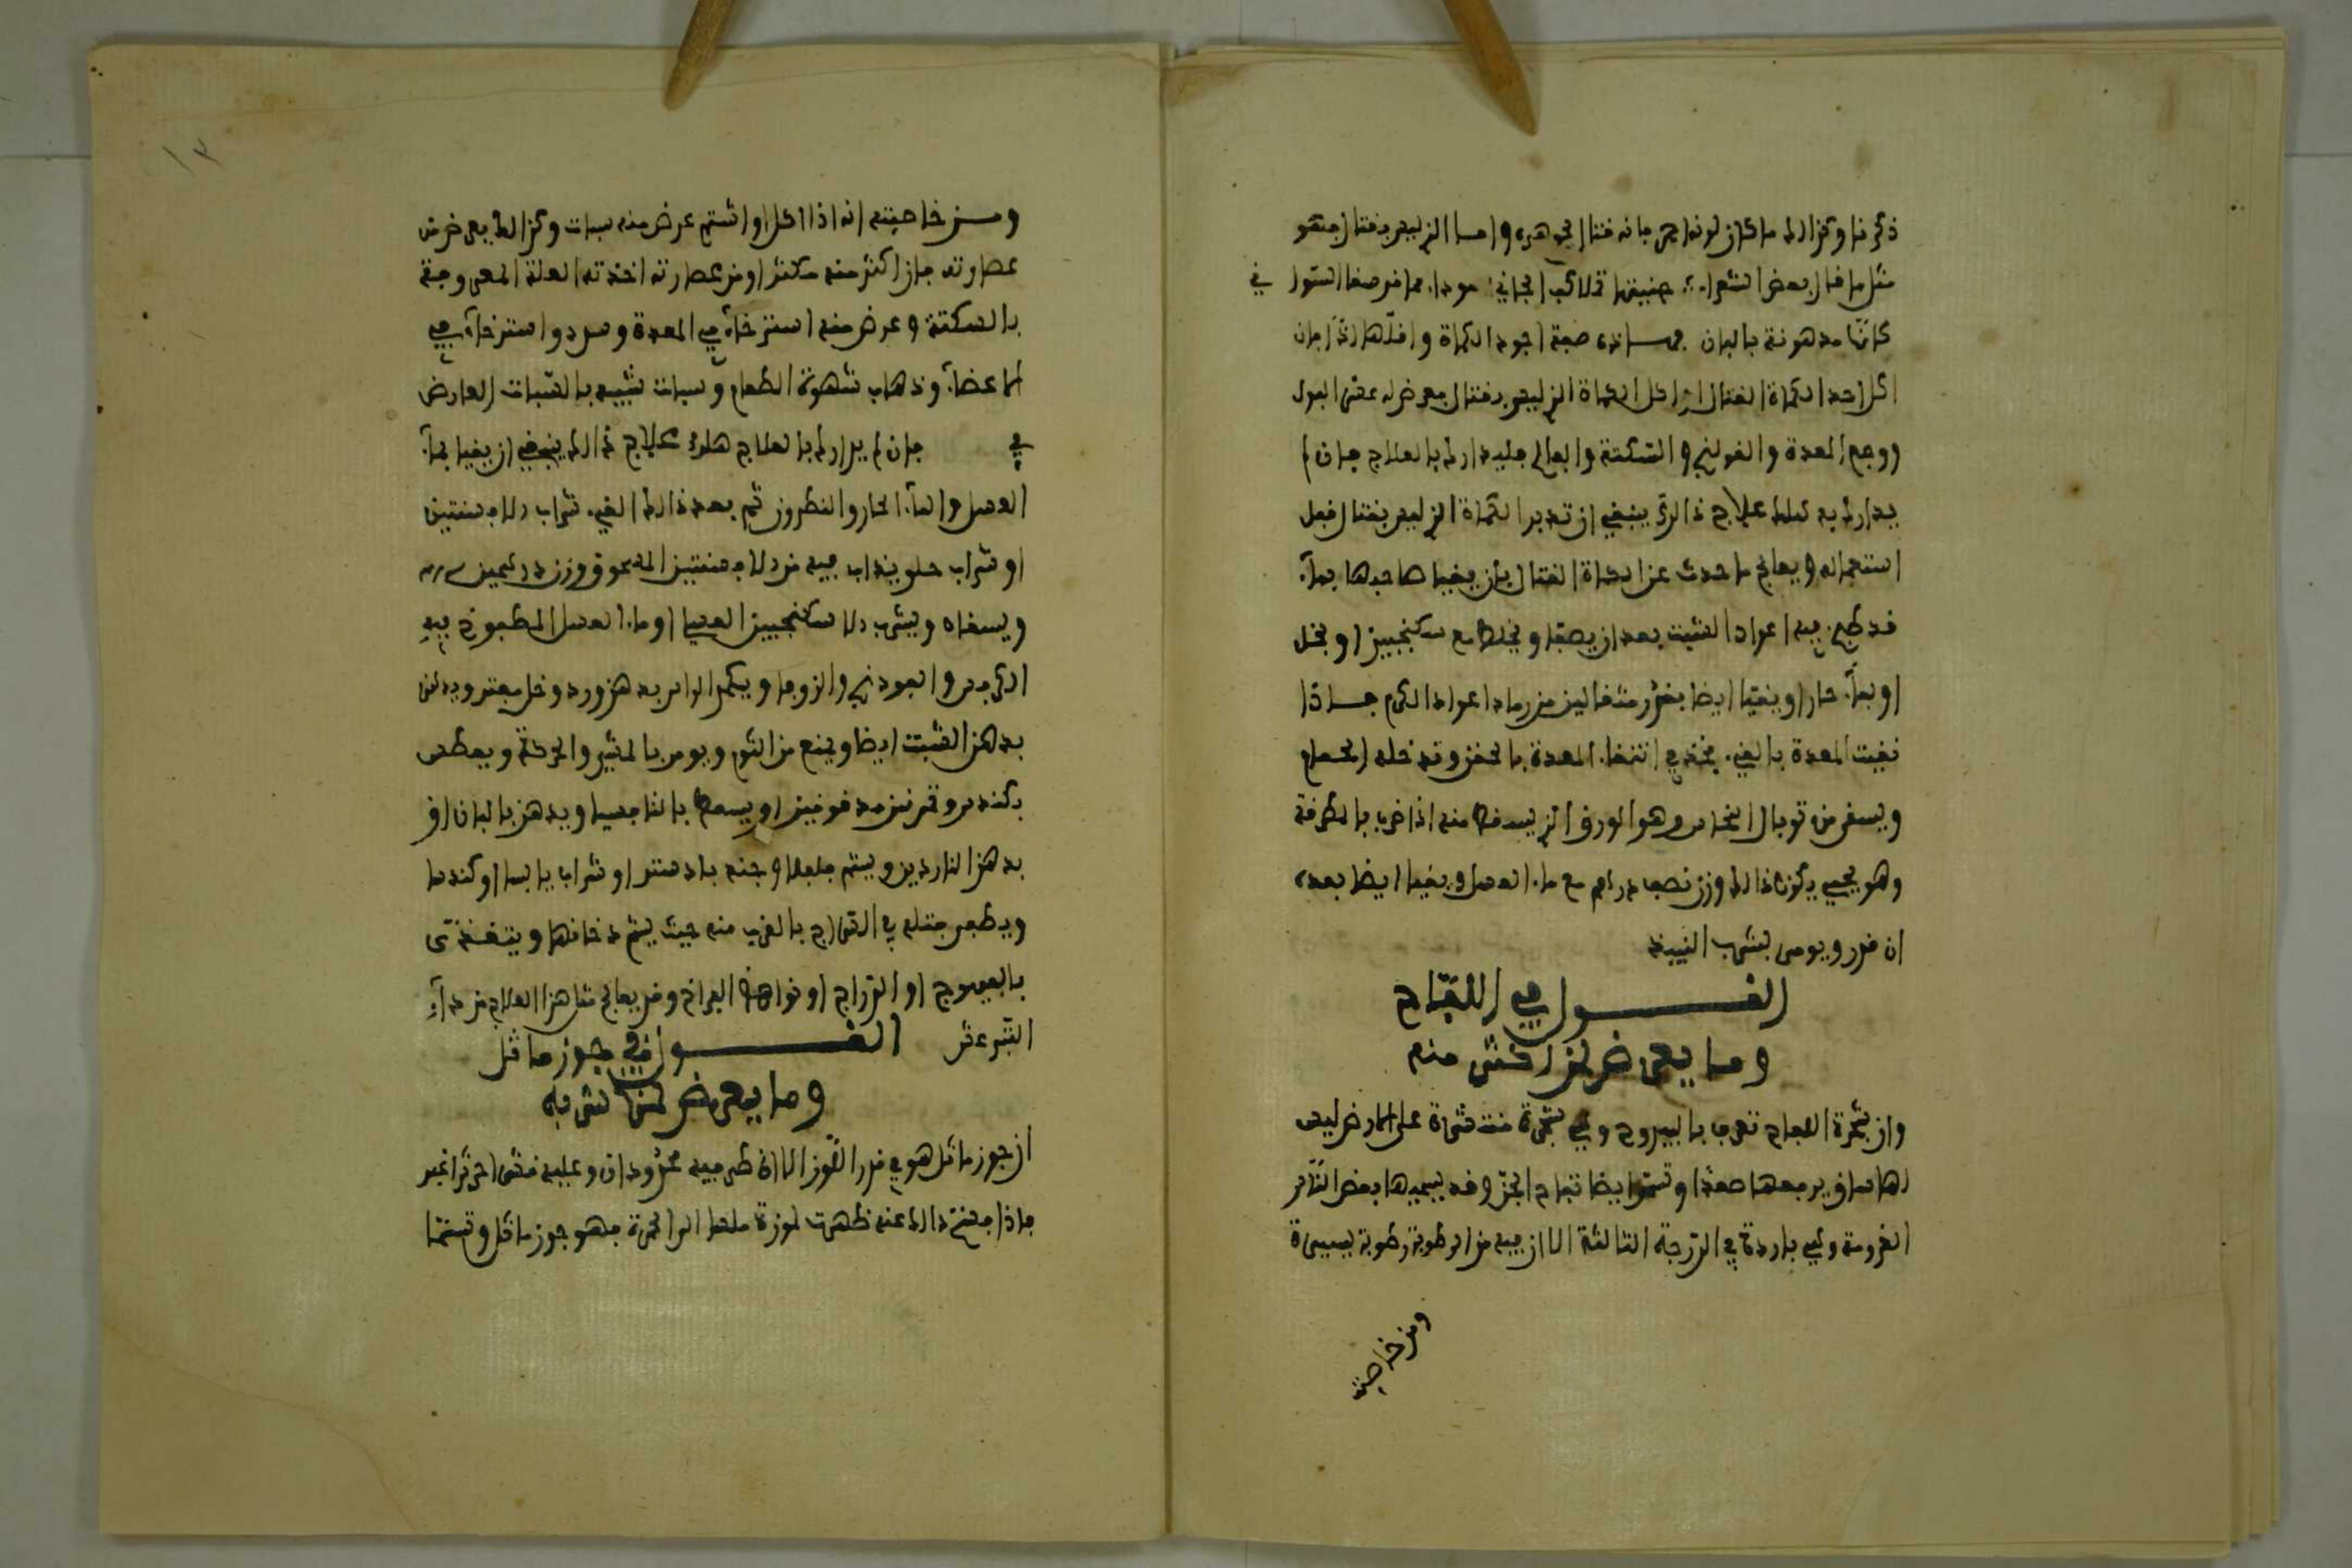 ذكرنا وكذالك ما كان لونه احمر فانه قتال بجوهره واما الذي ليس بقتال فهو
مثل ما قال بعض الشعراء
كانها مدهونة بالبان فهاذه صفة اجود الكماة واقلها اذا فان
اكل احد الكماة القتال او اكل الكماة الذي ليس بقتال فعرض له عسر البول
ووجع المعدة والقولنج والسكتة والفالج فليدارك بالعلاج فان لم
يدارك به هلك علاج ذالك ينبغي ان تدبر الكماة الذي ليس بقتال قبل
استعماله ويعالج ما حدث عن الكماة القتال بان يقيا صاحبها بماء
قد طبخ فيه اعواد الشبت بعد ان يصفا ويخلط مع سكنجبين او بخل
او بماء حار او يتقيا ايضا بقدر مثقالين من رماد اعواد الكرم فاذا
نقيت المعدة بالقيء فخذ في انتقاء المعدة بالحقن وتدخله الحمام
ويسقى من توبال النحاس وهو الورق الذي يسقط منه اذا ضرب بالمطرقة
وهو محمي يكون ذالك وزن نصف درهم مع ماء العسل ويقيا ايضا بعده
ان قدر ويومر بشرب النبيذ
القول في اللقاح
وما يعرض لمن اكثر منه
وان شجرة اللقاح تعرف باليبروح وهي شجرة منتشرة على الارض ليس
لها ساق يرفعها صعدا وتسمى ايضا تفاح الجن وقد يسميها بعض الناس
وهي باردة في الدرجة الثالثة الا ان فيه من الرطوبة رطوبة يسيرة
ومن خاصيته
١٣
ومن خاصيته انه اذا اكل او اشتم عرض منه سبات وكذالك يعرض من
عصارته فان اكثر منه مكثر او من عصارته اخذته العلة المعروفة
بالسكتة وعرض منه استرخاء في المعدة واسترخاء في
الاعضاء وذهاب شهوة الطعام وسبات شبيه بالسبات العارض
في فان لم يدارك بالعلاج هلك علاج ذالك ينبغي ان يقيا بماء
العسل والماء الحار والنطرون ثم بعد ذالك القيء شراب الافسنتين
او شراب حلو يذاب فيه من الافسنتين المدقوق وزن درهمين
ويسقاه ويشرب السكنجبين العسلي او ماء العسل المطبوخ فيه
الكرفس والفودنج والزوفا ويكمد الراس بدهن ورد وخل مفتر ويدهن
بدهن الشبت ايضا ويمنع من النوم ويومر بالمشي والحركة ويعطس
بكندس وقرنفل مدقوقين او يسعط بالنا ويدهن بالبان او
بدهن الناردين ويشم فلفلا وجند بادستر او شراب يابسا او كندسا
بالقرب منه حيث يشم دخانها ويتغذى
بالفروج او الدراج او نواهض الفراخ وقد يعالج مثل هذا العلاج من داء
القول في جوز ماثل
وما يعرض لمن شربه
ان جوز ماثل هو في قدر الجوز الا ان طرفيه محزودان وعليه قشر احرش اغبر
فاذا فتح ذالك عنه ظهرت لوزة ملسا الى الحمرة فهو جوز ماثل ويسما